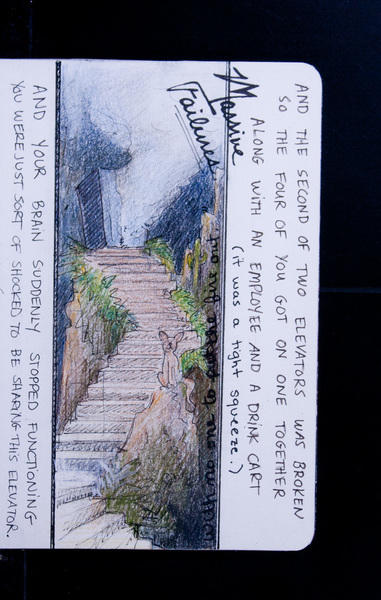 AND THE SECOND OF TWO ELEVATORS WAS BROKEN
SO THE FOUR OF YOU GOT ON ONE TOGETHER
ALONG WITH AN EMPLOYEE AND A DRINK CART
(it was a tight squeeze.)
Massive
Failures
AND YOUR BRAIN SUDDENLY STOPPED FUNCTIONING
YOU WERE JUST SORT OF SHOCKED TO BE SHARING THIS ELEVATOR.